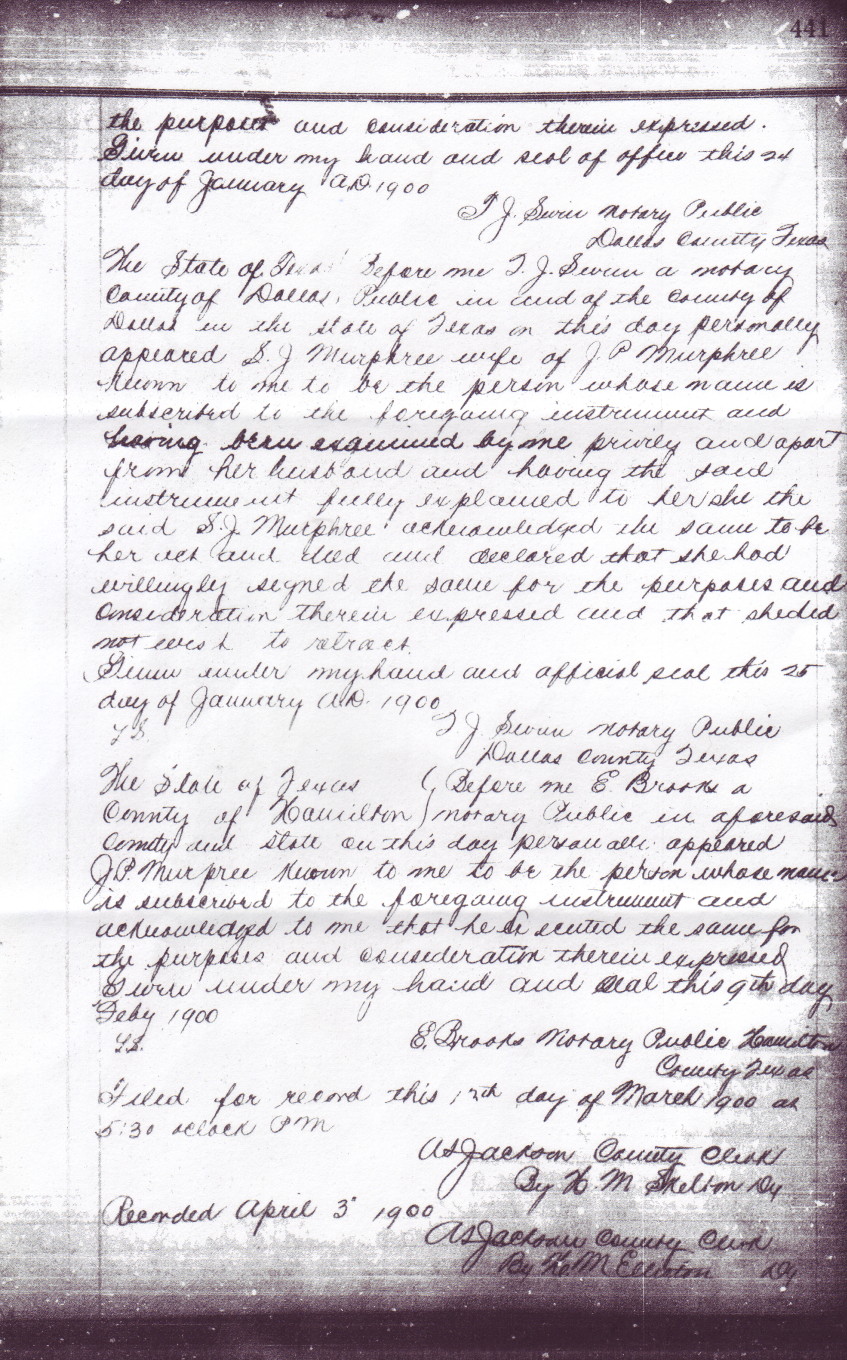 441
the purposes and consideration therein expressed.
Given under my hand and seal of office this 24
day of January A.D. 1900
T J. Swin Notary Public
Dallas County Texas
The State of Texas Before me T. J. Swin a notary
County of Dallas, Public in and of the County of
Dallas in the state of Texas on this day personally
appeared S. J Murphree wife of J. P Murphree
Known to me to be the person whose name is
subscribed to the foregoing instrument and
having been examined by me privily and apart
from her husband and having the said
instrument fully explained to her she the
said S. J. Murphree acknowledged the same to be
her act and deed and declared that she had
willingly signed the same for the purposes and
Consideration therein expressed and that she did
not wish to retract
Given under my hand and official seal this 25
day of January A.D. 1900
L.S. T J Swin Notary Public
Dallas County Texas
The State of Texas ( Before me E. Brooks a
County of Hamilton ) notary Public in aforesaid
County and state on this day personall appeared
J. P. Murpree Known to me to be the person whose name
is subscribed to the foregoing instrument and
acknowledged to me that he executed the same for
the purposes and consideration therein expressed
Given under my hand and seal this 9th day
Feby 1900
L.S. E. Brooks Notary Public Hamilton
County Texas
Filed for record this day of March 1900 at
5:30 oclock PM
AS Jackson County Clerk
By H. M Dy
Recorded April 3 1900
AS Jackson County Clerk
By M Dy